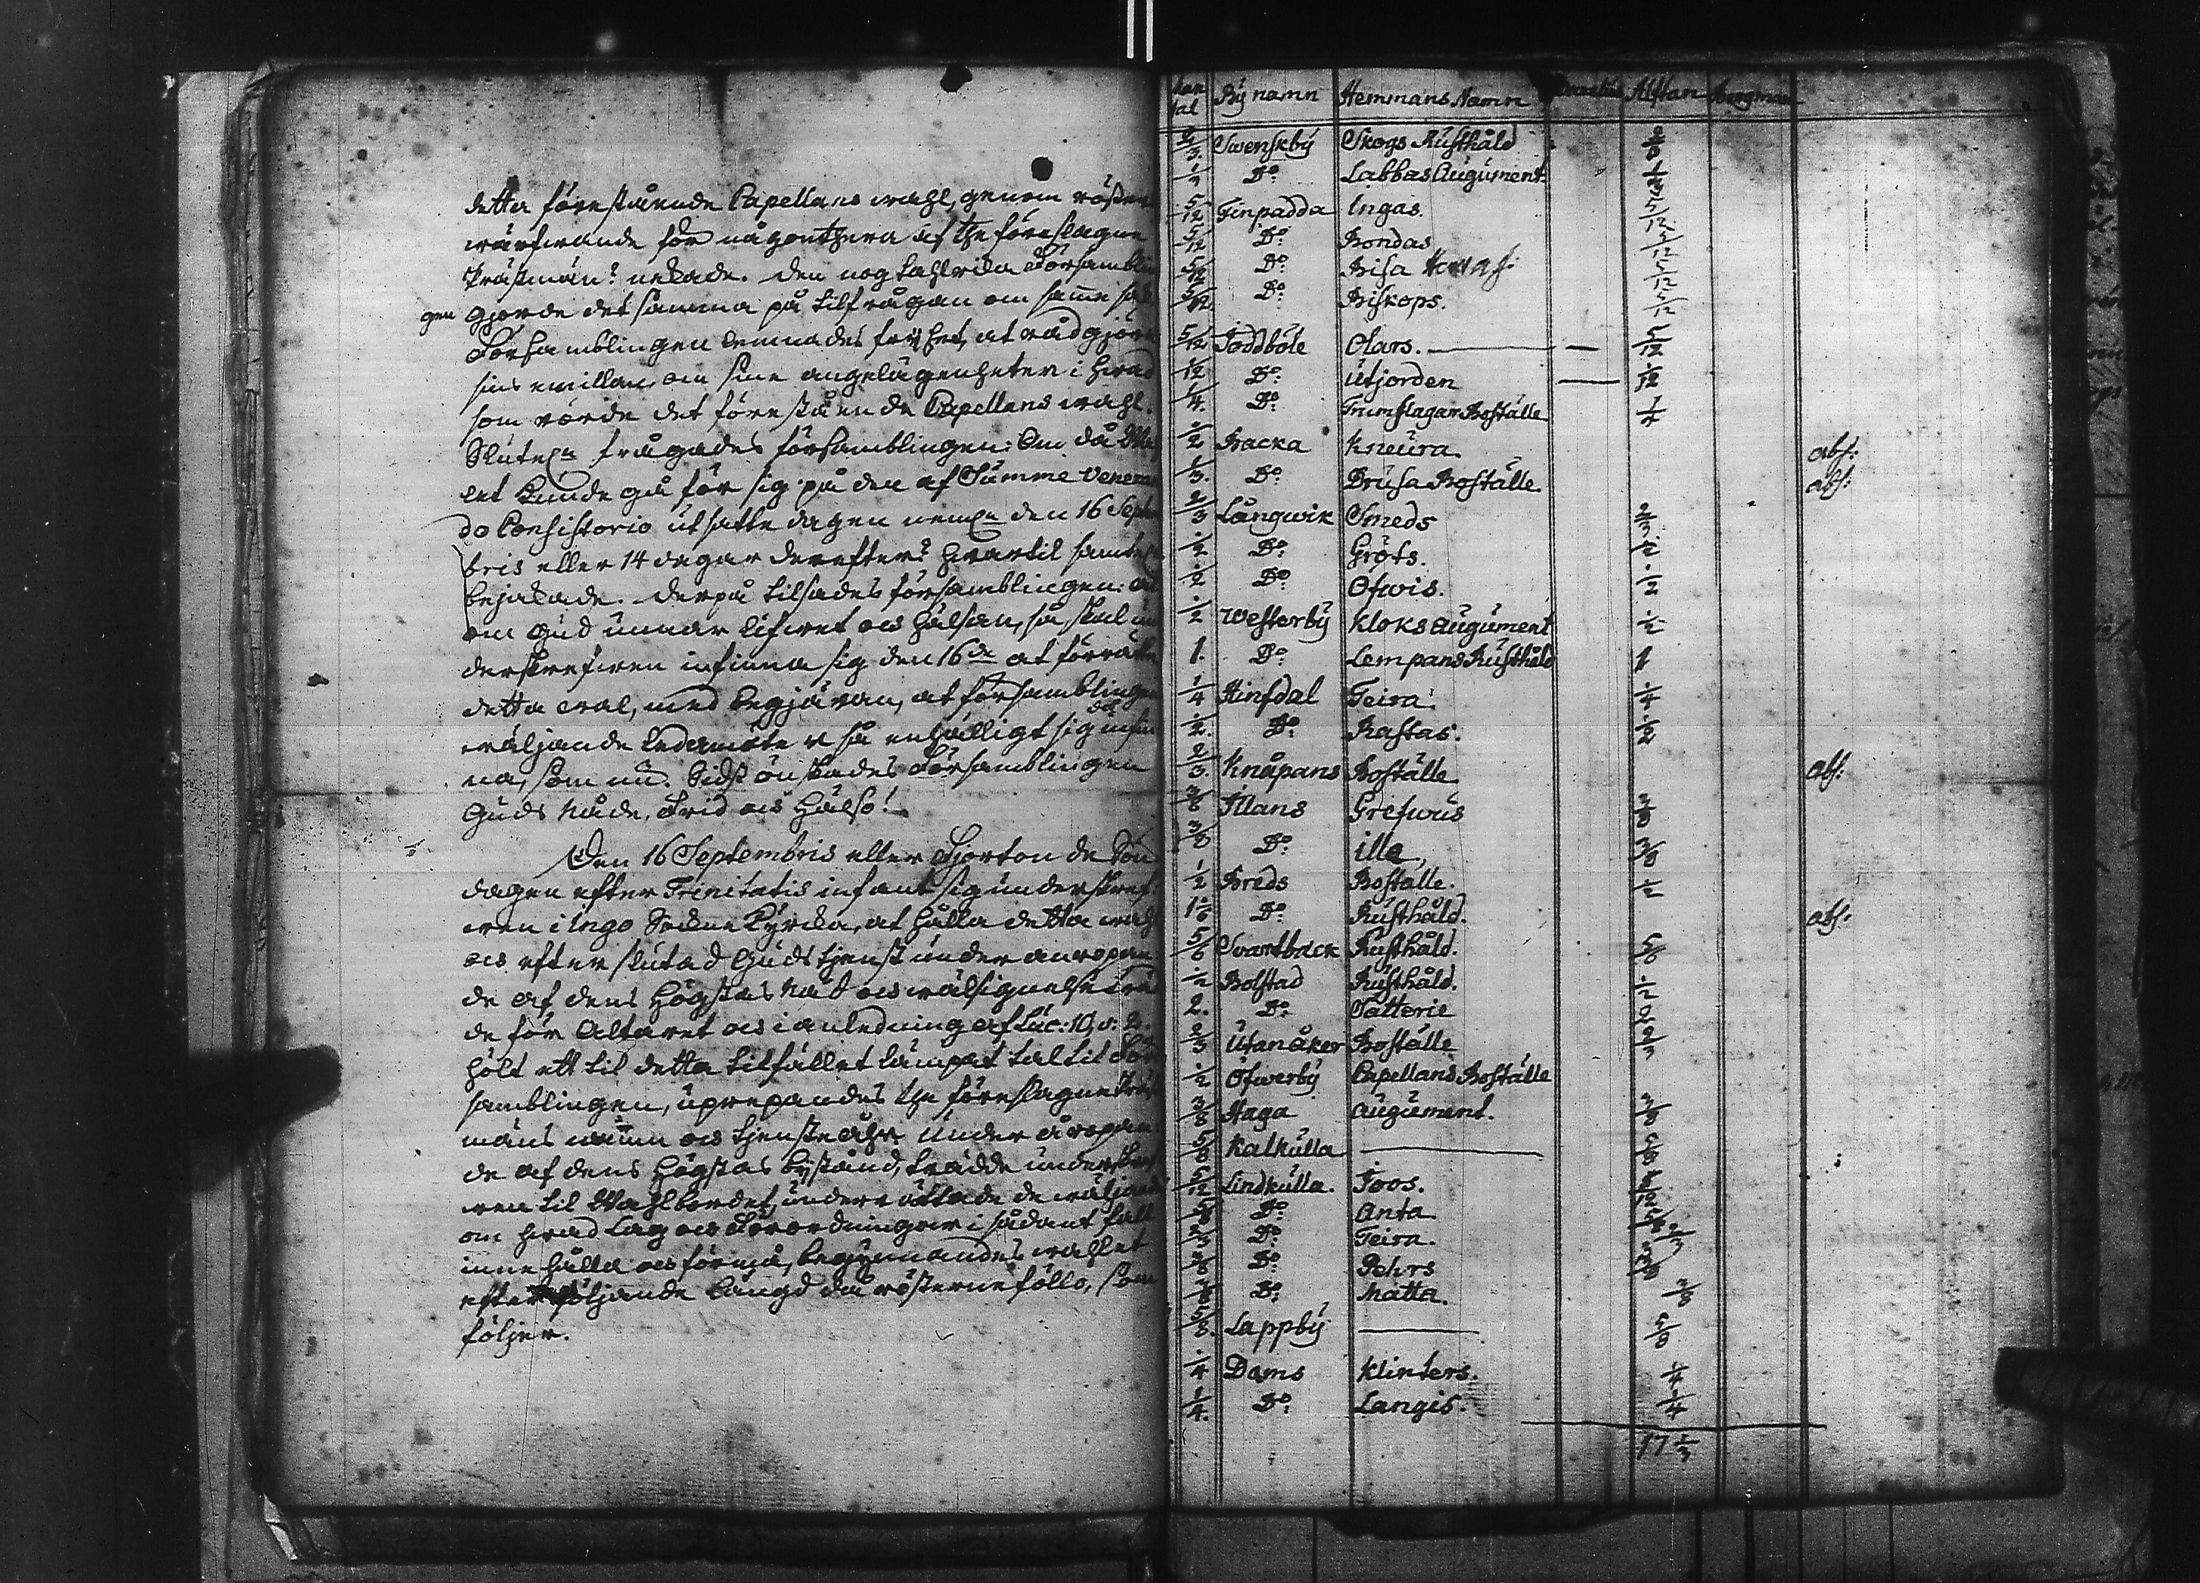 detta förestående Capellans wahl, genom röster
wärfwande för någonthera af the föreslagne
Prästmän? nekade. Den nog talrika Församblin
gen gjorde det samma på tilfrågan om samme sak
Församblingen lemnades fryhet, at rådgjöra
sins emillan, om sine angelägenheter i hwad
som rörde det förestående Capellans wahl.
Slutel. frågades församblingen: Om då Wa
let kunde gå för sig på den af Summe Veneran
do Consistorio utsatte dagen neml. den 16 Septem
bris eller 14 dagar derefter? hwartil samtel.
bejakade. Derpå tilsades församblingen: at
om Gud unnar lifwet och hälsan, så skal un
derskrefwen infinna sig den 16de at förrätta
detta wal, med begjäran, at församblingens
wäljande ledamöter så enhälligt sig då infin
na, som nu. Sidst önskades Församblingen
Guds Nåde, Frid och Hälso!
Den 16 Septembris eller Fjortonde Sön
dagen efter Trinitatis infant sig underskref
wen i Ingo Sockne Kyrcka, at hålla detta wahl
och efter slutad Gudstjenst under anropan
de af dens Högstas Nåd och wälsignelse träd
de för Altaret och i anledning af Luc: 10, v: 2.
hölt ett til detta tilfället lämpat tal til För
samblingen, uprepandes the föreslagne Präst
mäns namn och tjensteåhr. Under åropan
de af dens Högstas bystånd, trädde underskref
wen til Wahlbordet, underrättade de wäljande
om hwad Lag och Förordningar i sådant fall
innehålla och förmå, begynnandes wahlet
efter följande Längd då rösterne föllo, som
följer.
tal By namn Hemmans Namn Alftan Bergman
2/3. Swenskby Skogs Rusthåld 2/3
1/2 Do: Labbas Augument. 1/2
5/12 Finpadda Ingas. 5/12
5/12 Do: Bondas 5/12
5/12 Do: Bisa 5/12
5/12 Do: Biskops. 5/12
5/12 Joddböle Olars. — 5/12
1/12 Do: Utjorden — 1/12
1/4. Do: Trumslagar Boställe 1/4
1/2 Backa Kneura. abs:
1/3. Do: Drusa Boställe abs:
2/3 Långwik Smeds 2/3
1/2 Do: Gröts. 1/2
1/2 Do: Öfwis. 1/2
1/2 Westerby Kloks augument 1/2
1. Do: Lempans Rusthåld 1
1/4 Hinsdal Teira. 1/4
1/2. Do: Rastas. 1/2
2/3. Knåpans Boställe abs:
3/8 Illans Grefwus 3/8
3/8 Do: ille 3/8
1/2 Breds Boställe. 1/2
1 1/6 Do: Rusthåld. abs:
5/6 Svartbäck Rusthåld. 5/6
1/2 Bolstad Rusthåld. 1/2
2. Do: Sätterie 2
2/3 Utanåker Boställe 2/3
1/2 Öfwerby Capellans Boställe
3/8 Haga Augument. 3/8
5/8 Kalkulla — 5/8
5/12 Lindkulla. Joos. 5/12
Do: Anta.
Do: Teira.
3/8 Do: Pehrs 3/8
3/8 Do: Matta. 3/8
5/8. Lappby — 5/8
1/4 Dams Klinters. 1/4
1/4. Do: Langis. 1/4
17 1/3